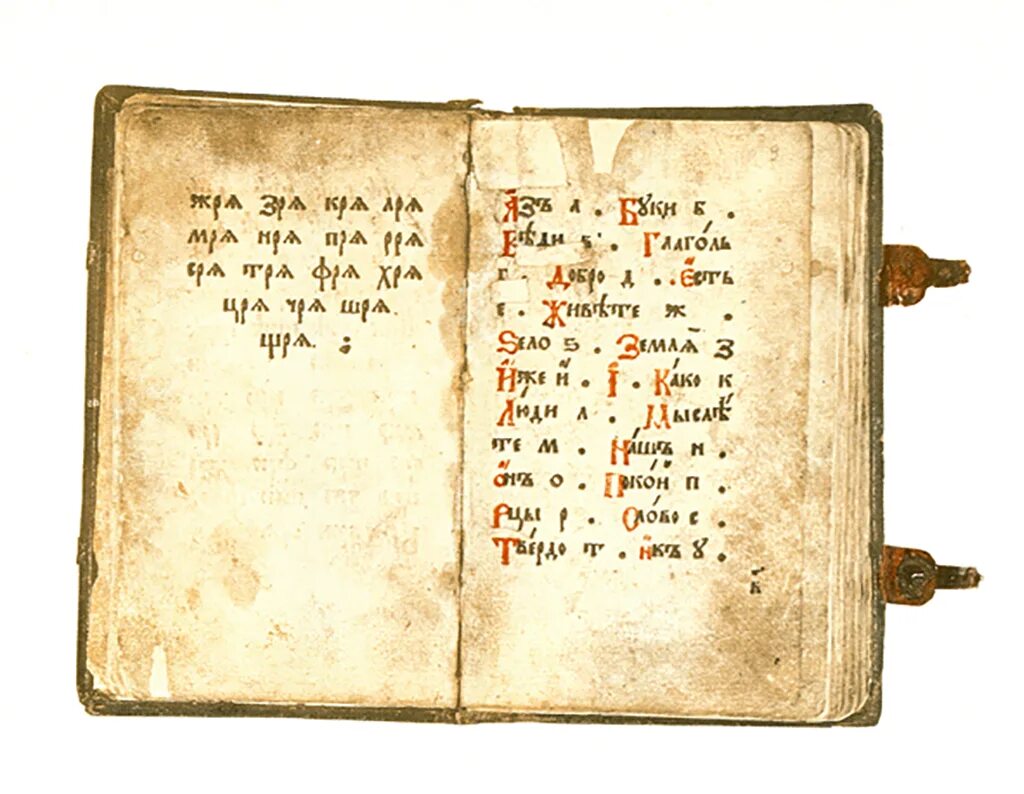 жрѧ зрѧ крѧ лрѧ
мрѧ нрѧ прѧ ррѧ
срѧ трѧ фрѧ хрѧ
црѧ чрѧ шрѧ
щрѧ.
А҆зъ а . Буки б .
Вѣди в . Глаго́ль
г . добро д . Е҆сть
е . Живѣте ж .
Ѕело ѕ . Землѧ̀ з
И҆́же и҆ . І҆ . Ка́ко к
Лю́ди л . Мыслѣ́
те м . На́шъ н .
о҆́нъ о . Поко́й п .
Рцы р . Сло́во с .
Тве́рдо т . и҆къ у .
к